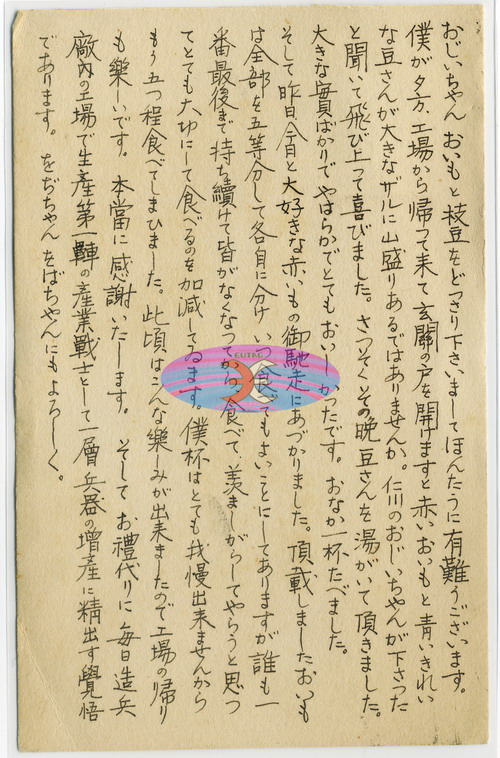 おじいちゃん おいもと枝豆をどっさり下さいましてほんたうに有難うございます。
僕が夕方、工場から帰って来て玄關の戸を開けますと赤いおいもと青いきれい
な豆さんが大きなザルに山盛りあるではありませんか。仁川のおじいちゃんが下さった
と聞いて飛び上って喜びました。さっそくその晩豆さんを湯がいて頂きました。
大きな實ばかりでやはらかでとてもおいしかったです。おなか一杯たべました。
そして昨日、今日と大好きな赤いもの御馳走にあづかりました。頂載しましたおいも
は全部を五等分して各自に分け いつ食べてもよいことにしてありますが誰も一
番最後まで持ち續けて皆がなくなってから食べて、羨ましがらしてやらうと思っ
てとても大切にして食べるのを加減してゐます。僕杯はとても我慢出来ませんから
もう五つ程食べてしまひました。此頃はこんな樂しみが出来ましたので工場の帰り
も樂しいです。本當に感謝いたします。 そしてお禮代りに毎日造兵
廠内の工場で生産第一陣の産業戰士として一層兵器の増産に精出す覺悟
であります。 をぢちゃんをばちゃんにもよろしく。
EUTBG